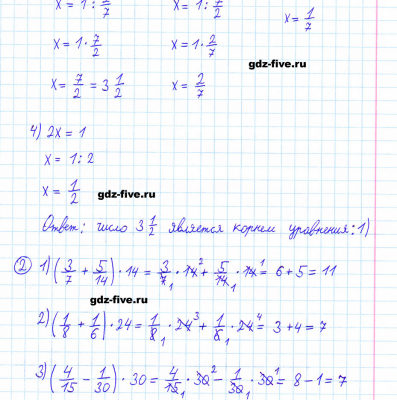 x = 1 : 2/7
x = 1 : 7/2
x = 1/7
x = 1 · 7/2
x = 1 · 2/7
gdz-five.ru
x = 7/2 = 3 1/2
x = 2/7
4) 2x = 1
x = 1 : 2
x = 1/2
gdz-five.ru
Ответ: число 3 1/2 является корнем уравнения: 1)
2 1) (3/7 + 5/14) · 14 = 3/7 · 14 2 + 5/14 · 14 1 = 6 + 5 = 11
1 1
gdz-five.ru
2) (1/8 + 1/6) · 24 = 1/8 · 24 3 + 1/6 · 24 4 = 3 + 4 = 7
1 1
3) (4/15 − 1/30) · 30 = 4/15 · 30 2 − 1/30 · 30 1 = 8 − 1 = 7
1 1